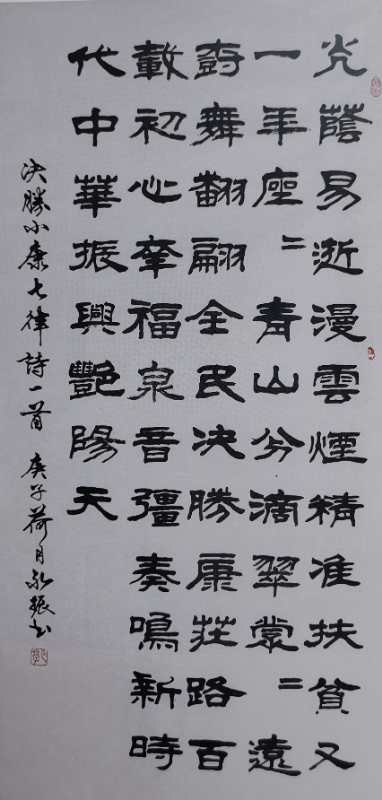 光蔭易逝漫雲煙精准扶貧又
一年座〻青山分滴翠裳〻遠
尌舞翩翩全民決勝康莊路百
載初心牽福泉音彊奏鳴新時
代中華振興豔陽天
決勝小康七律詩一首 庚子荷月永振书